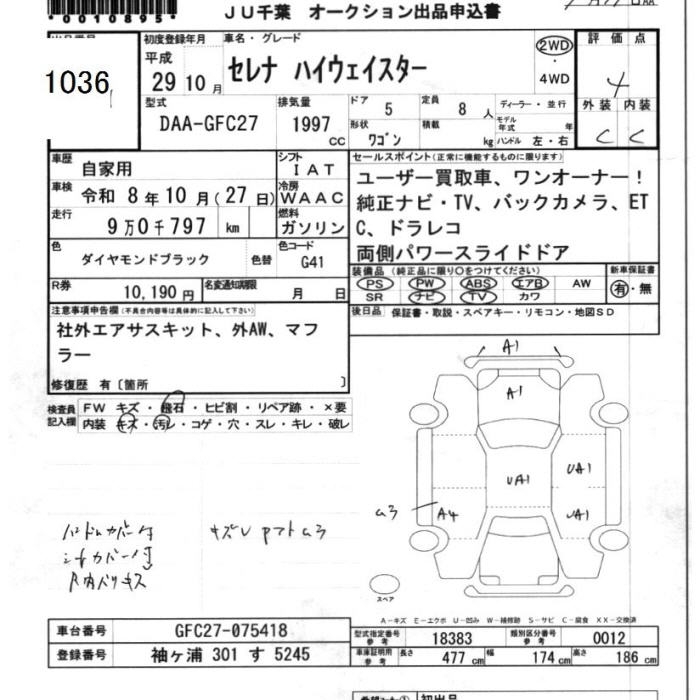 *0010895*
JU千葉 オークション出品申込書
1036
初度登録年月
平成
29 10 月
車名・グレード
セレナ ハイウェイスター
2WD
・
4WD
評価点
4
外装 内装
C C
型式
DAA-GFC27
排気量
1997
CC
ドア
5
定員
8 人
形状
ワゴン
積載
kg
ディーラー・並行
モデル年式 年
ハンドル 左・右
車歴
自家用
シフト
IAT
車検
令和 8年10月(27日)
冷房
WAAC
走行
9万0千797 km
燃料
ガソリン
色
ダイヤモンドブラック
色替
色コード
G41
R券
10,190円
名変通知期限
月 日
セールスポイント(正常に機能するものに限ります)
ユーザー買取車、ワンオーナー!
純正ナビ・TV、バックカメラ、ET
C、ドラレコ
両側パワースライドドア
装備品(純正品に限り○をつけてください)
PS PW ABS エアB AW
SR ナビ TV カワ
新車保証書
有・無
後日品 保証書・取説・スペアキー・リモコン・地図SD
注意事項申告欄(不具合内容等は具体的に記入して下さい)
社外エアサスキット、外AW、マフ
ラー
修復歴 有〔箇所 〕
検査員
記入欄
FW キズ・飛石・ヒビ割・リペア跡・×要
内装 キズ・汚レ・コゲ・穴・スレ・キレ・破レ
A1
A1
UA1
UA1
UA1
A4
スペア
A-キズ E-エクボ U-凹み W-補修跡 S-サビ C-腐食 XX-交換済
車台番号 GFC27-075418
登録番号 袖ヶ浦 301 す 5245
型式指定番号
参考
18383
類別区分番号
参考
0012
車庫証明用
参考
長さ 477 cm 幅 174 cm 高さ 186 cm
初出品